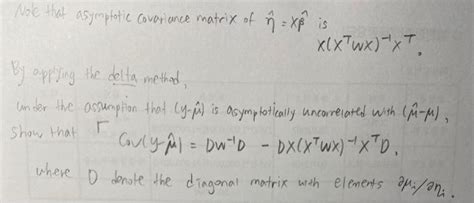 Note that asymptotic covariance matrix of η̂ = Xβ̂ is
X(XᵀWX)⁻¹Xᵀ.
By applying the delta method,
under the assumption that (y-μ̂) is asymptotically uncorrelated with (μ̂-μ),
show that
Cov(y-μ̂) = DW⁻¹D - DX(XᵀWX)⁻¹XᵀD.
where D denote the diagonal matrix with elements ∂μᵢ/∂ηᵢ.